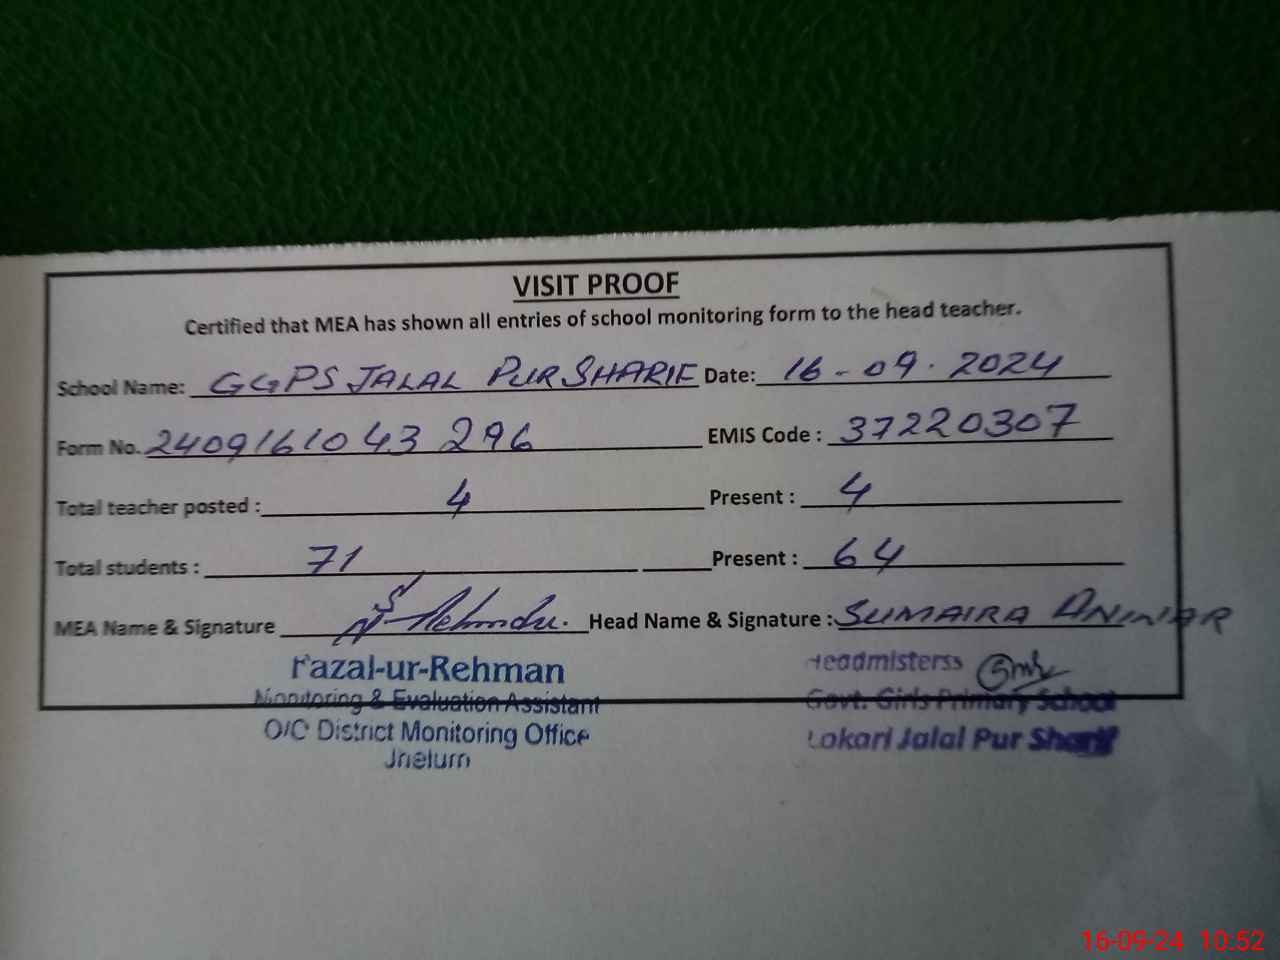 VISIT PROOF
Certified that MEA has shown all entries of school monitoring form to the head teacher.
School Name: GGPS JALAL PUR SHARIF Date: 16-09.2024
Form No. 24091610 43 296 EMIS Code : 37220307
Total teacher posted : 4 Present : 4
Total students : 71 Present : 64
MEA Name & Signature Head Name & Signature : SUMAIRA
Fazal-ur-Rehman
Monitoring & Evaluation Assistant
O/C District Monitoring Office
Jhelum
Headmisterss
Govt. Girls Primary School
Lokari Jalal Pur Sharif
16-09-24 10:52